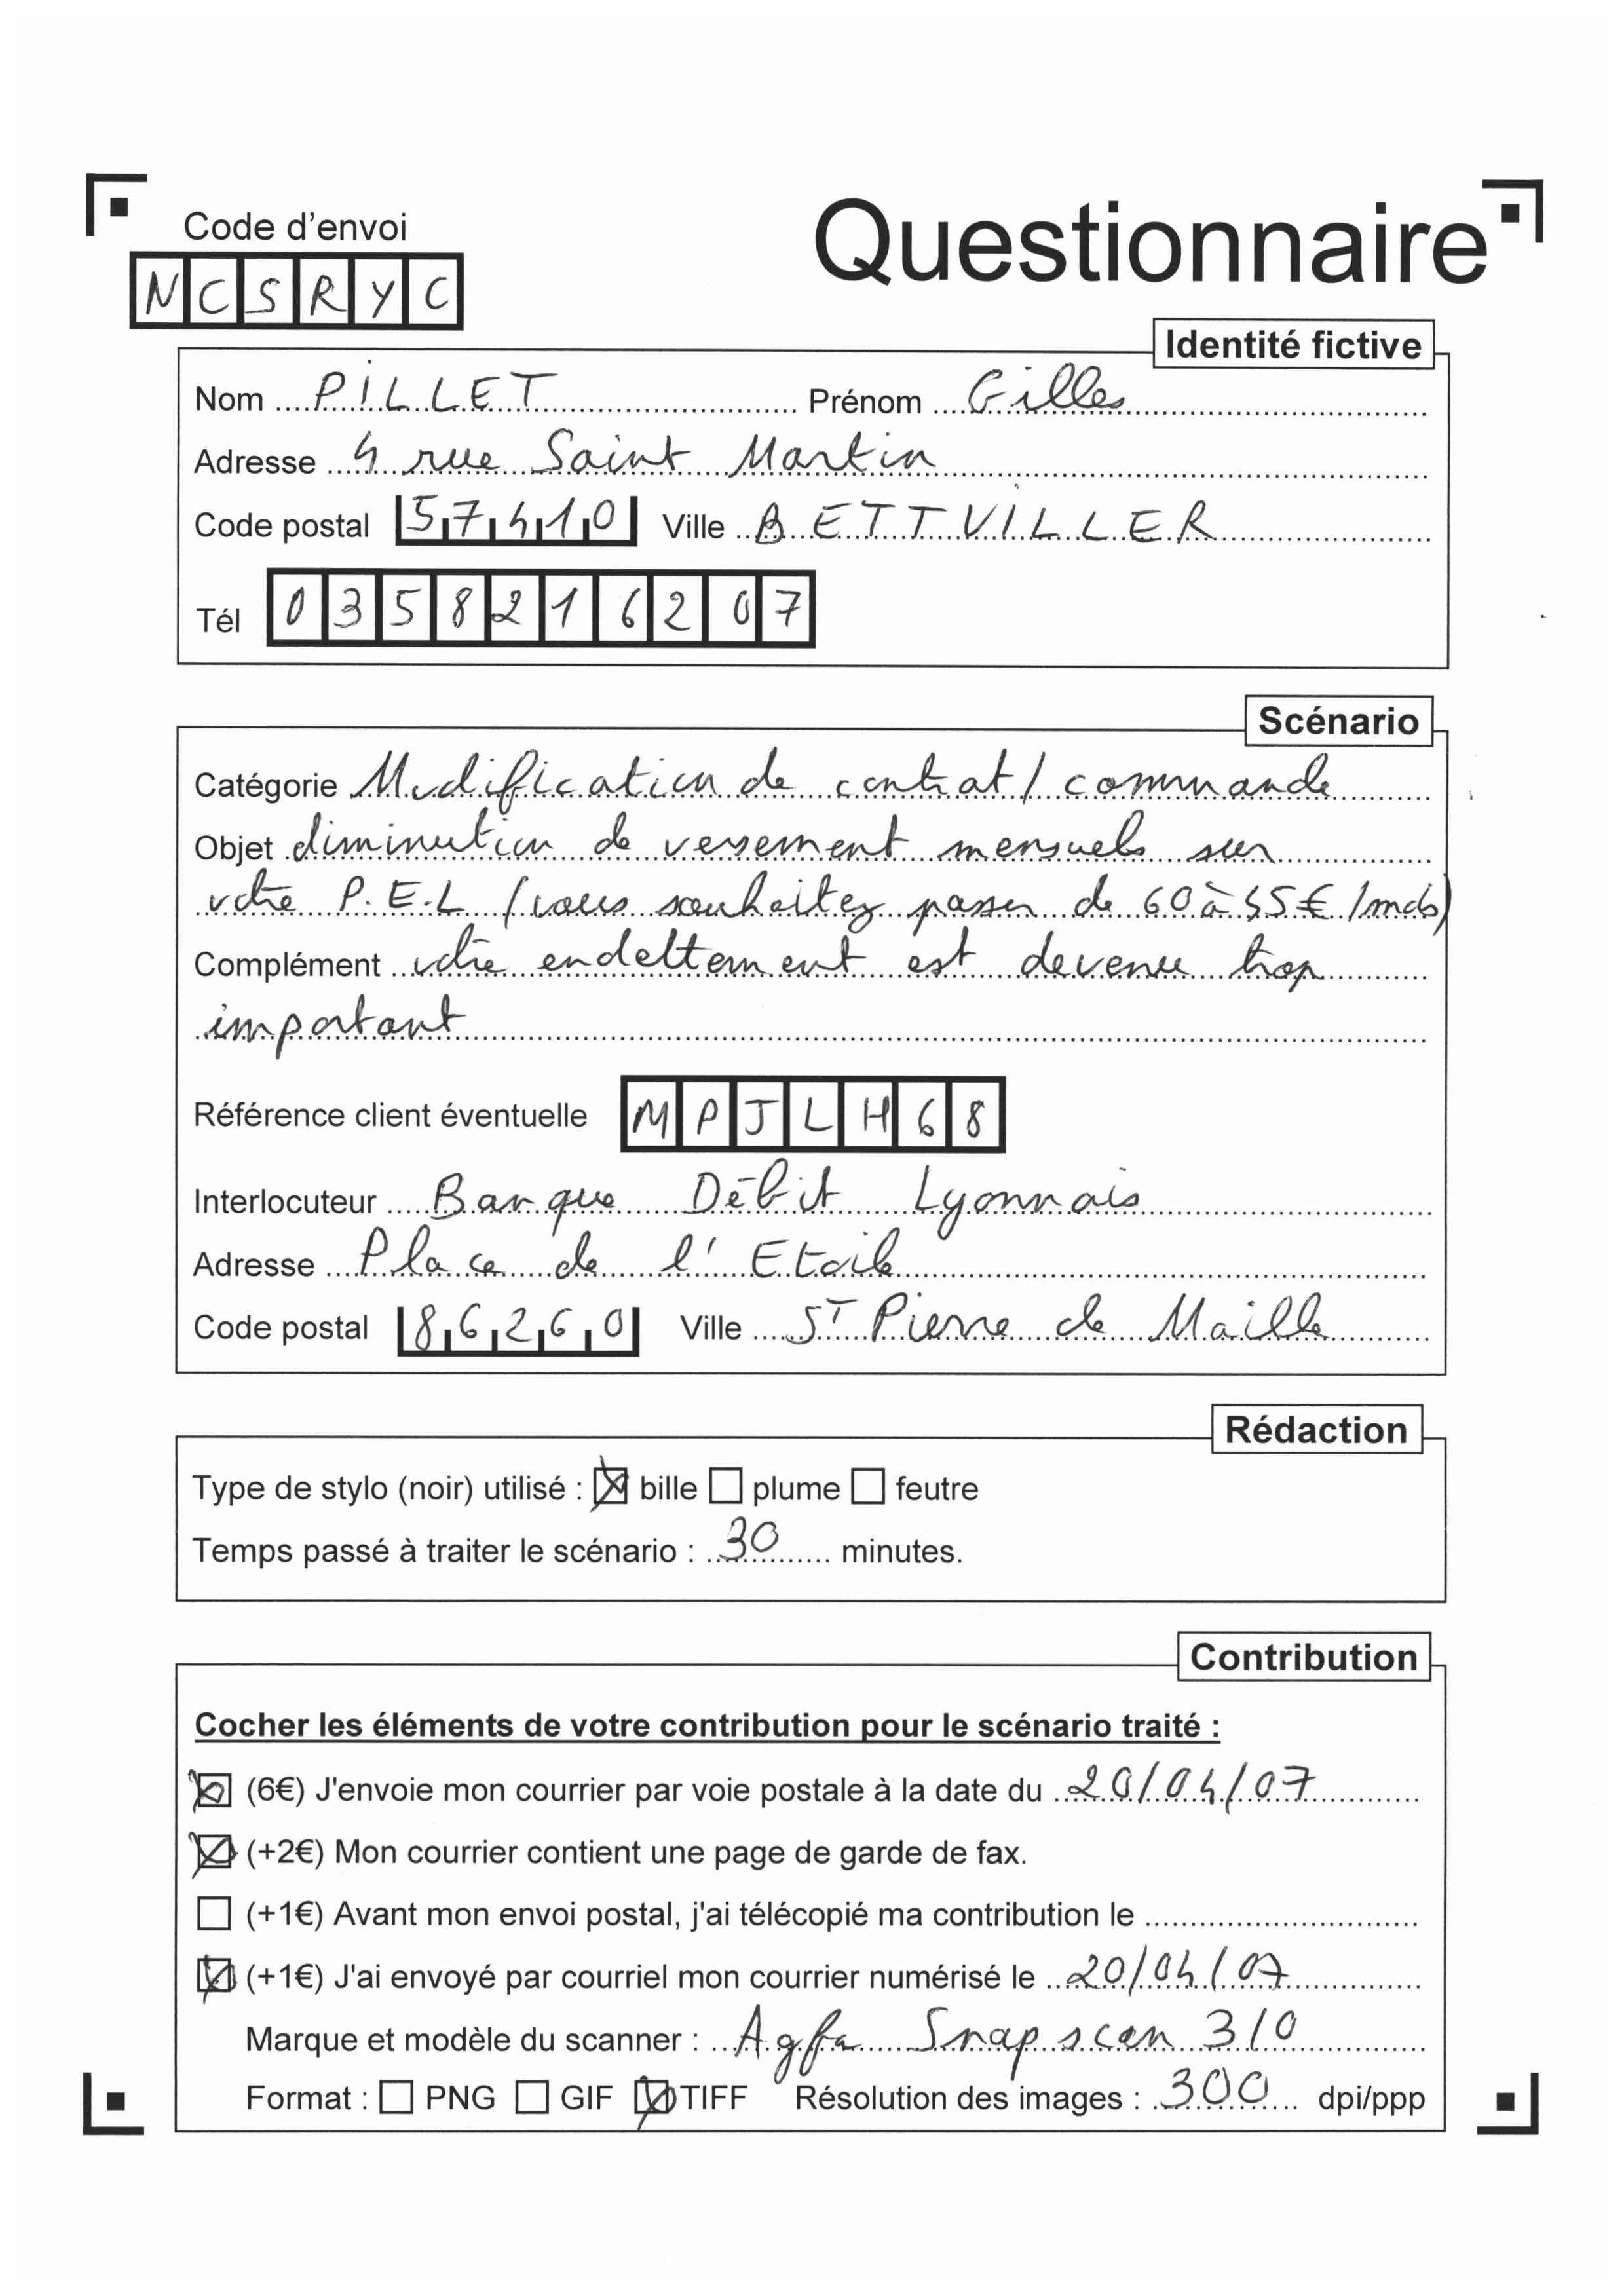 Questionnaire
Code d'envoi
NCSRYC
Identité fictive
Nom PILLET Prénom Gilles
Adresse 4 rue Saint Martin
Code postal 57410 Ville BETTVILLER
Tél 0358216207
Scénario
Catégorie Modification de contrat / commande
Objet diminution de versement mensuels sur
votre P.E.L (vous souhaitez passer de 60 à 45€ /mois)
Complément votre endettement est devenu trop
important
Référence client éventuelle MPJLH68
Interlocuteur Banque Débit Lyonnais
Adresse Place de l'Etoile
Code postal 86260 Ville ST Pierre de Maille
Rédaction
Type de stylo (noir) utilisé : bille plume feutre
Temps passé à traiter le scénario : 30 minutes.
Contribution
Cocher les éléments de votre contribution pour le scénario traité :
(6€) J'envoie mon courrier par voie postale à la date du 20/04/07
(+2€) Mon courrier contient une page de garde de fax.
(+1€) Avant mon envoi postal, j'ai télécopié ma contribution le
(+1€) J'ai envoyé par courriel mon courrier numérisé le 20/04/07
Marque et modèle du scanner : Agfa Snapscan 310
Format : PNG GIF TIFF Résolution des images : 300 dpi/ppp